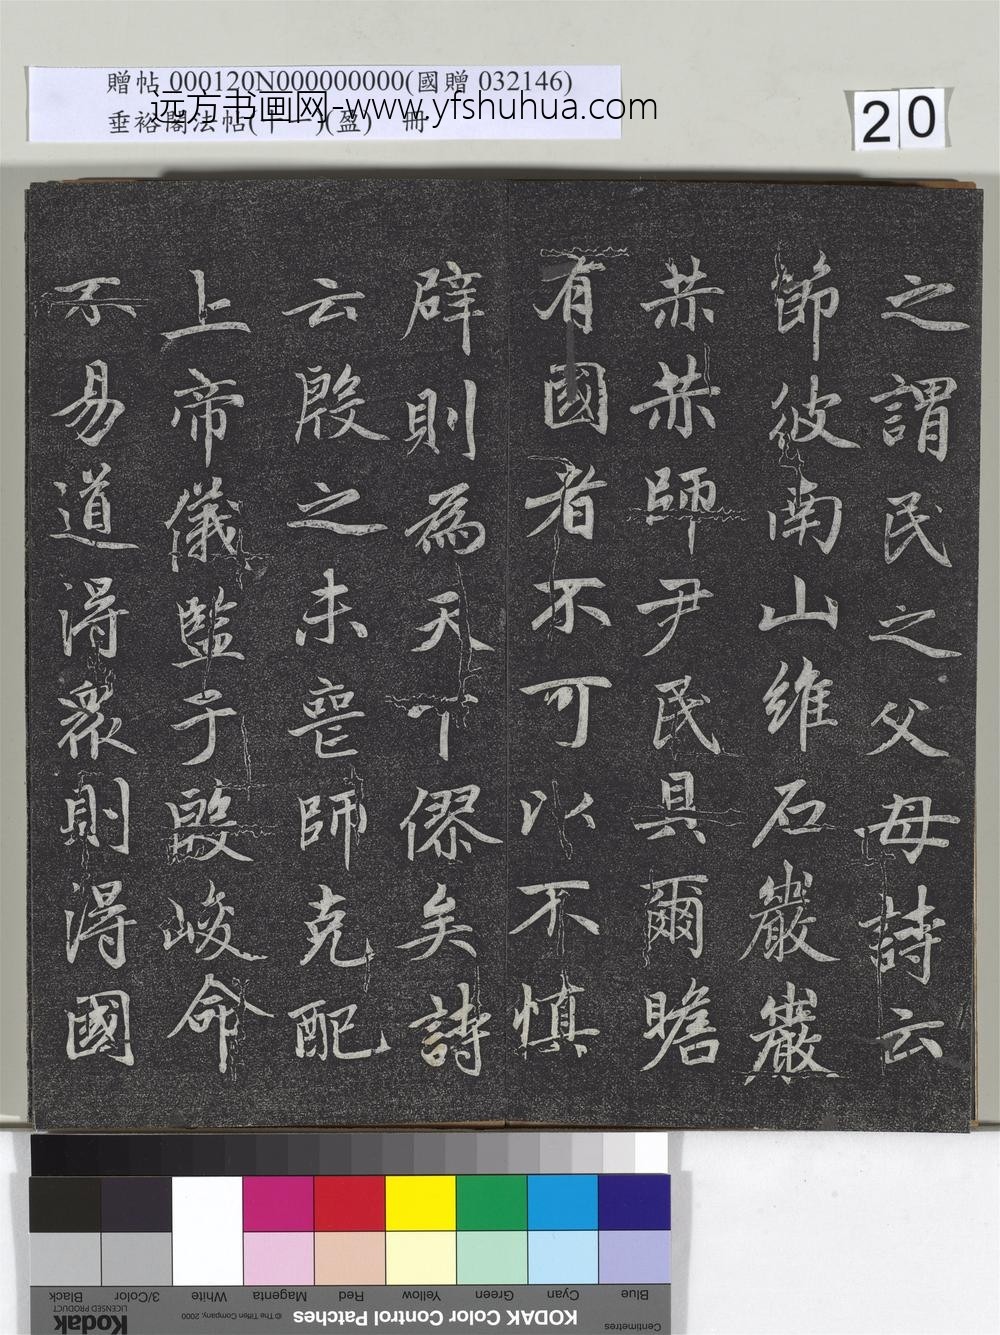 贈帖 000120N000000000(國贈 032146)
垂裕閣法帖(十一)(盈) 冊
远方书画网-www.yfshuhua.com
20
之謂民之父母詩云
節彼南山維石巖巖
恭恭師尹民具爾瞻
有國者不可以不慎
辟則為天下僇矣詩
云殷之未喪師克配
上帝儀監于殷峻命
不易道得衆則得國
Blue Cyan Green Yellow Red Magenta White 3/Color Black
Centimetres KODAK Color Control Patches © The Tiffen Company, 2000 Kodak
LICENSED PRODUCT